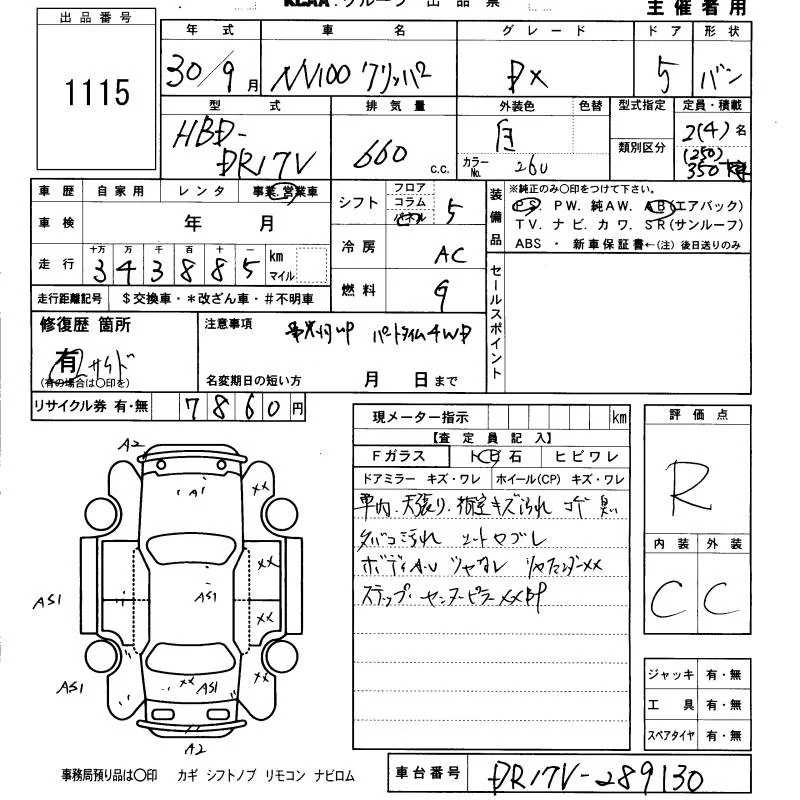 出品票
主催者用
出品番号
1115
年式 車名 グレード ドア 形状
30/9月 NV100 クリッパー DX 5 バン
型式 排気量 外装色 色替 型式指定 定員・積載
HBD-DR17V 660 c.c. 白 カラーNo. 26U 類別区分 2(4)名 (250) 350
車歴 自家用 レンタ 事業.営業車
車検 年 月
走行 十万 万 千 百 十 一 km マイル
3 4 3 8 8 5
走行距離記号 $交換車・*改ざん車・#不明車
シフト フロア コラム パネル 5
冷房 AC
燃料 G
装備品
※純正のみ○印をつけて下さい。
PS. PW. 純AW. AB(エアバック)
TV. ナビ. カワ. SR(サンルーフ)
ABS・新車保証書←(注)後日送りのみ
セールスポイント
修復歴 箇所
有 Lサイド
(有の場合は○印を)
注意事項 パートタイム4WD
名変期日の短い方 月 日まで
リサイクル券 有・無 7860円
現メーター指示 km
【査定員記入】
Fガラス トビ石 ヒビワレ
ドアミラー キズ・ワレ ホイール(CP) キズ・ワレ
車内.天張り.荷室キズ汚れ 臭
タバコ汚れ シートヤブレ
ボディAU ツヤなし リヤフェンダーXX
ステップ・センターピラーXX BP
評価点
R
内装 外装
C C
ジャッキ 有・無
工具 有・無
スペアタイヤ 有・無
A2
A1
XX
XX
AS1
AS1
XX
AS1
XX
AS1
XX
A2
事務局預り品は○印 カギ シフトノブ リモコン ナビロム
車台番号 DR17V-289130